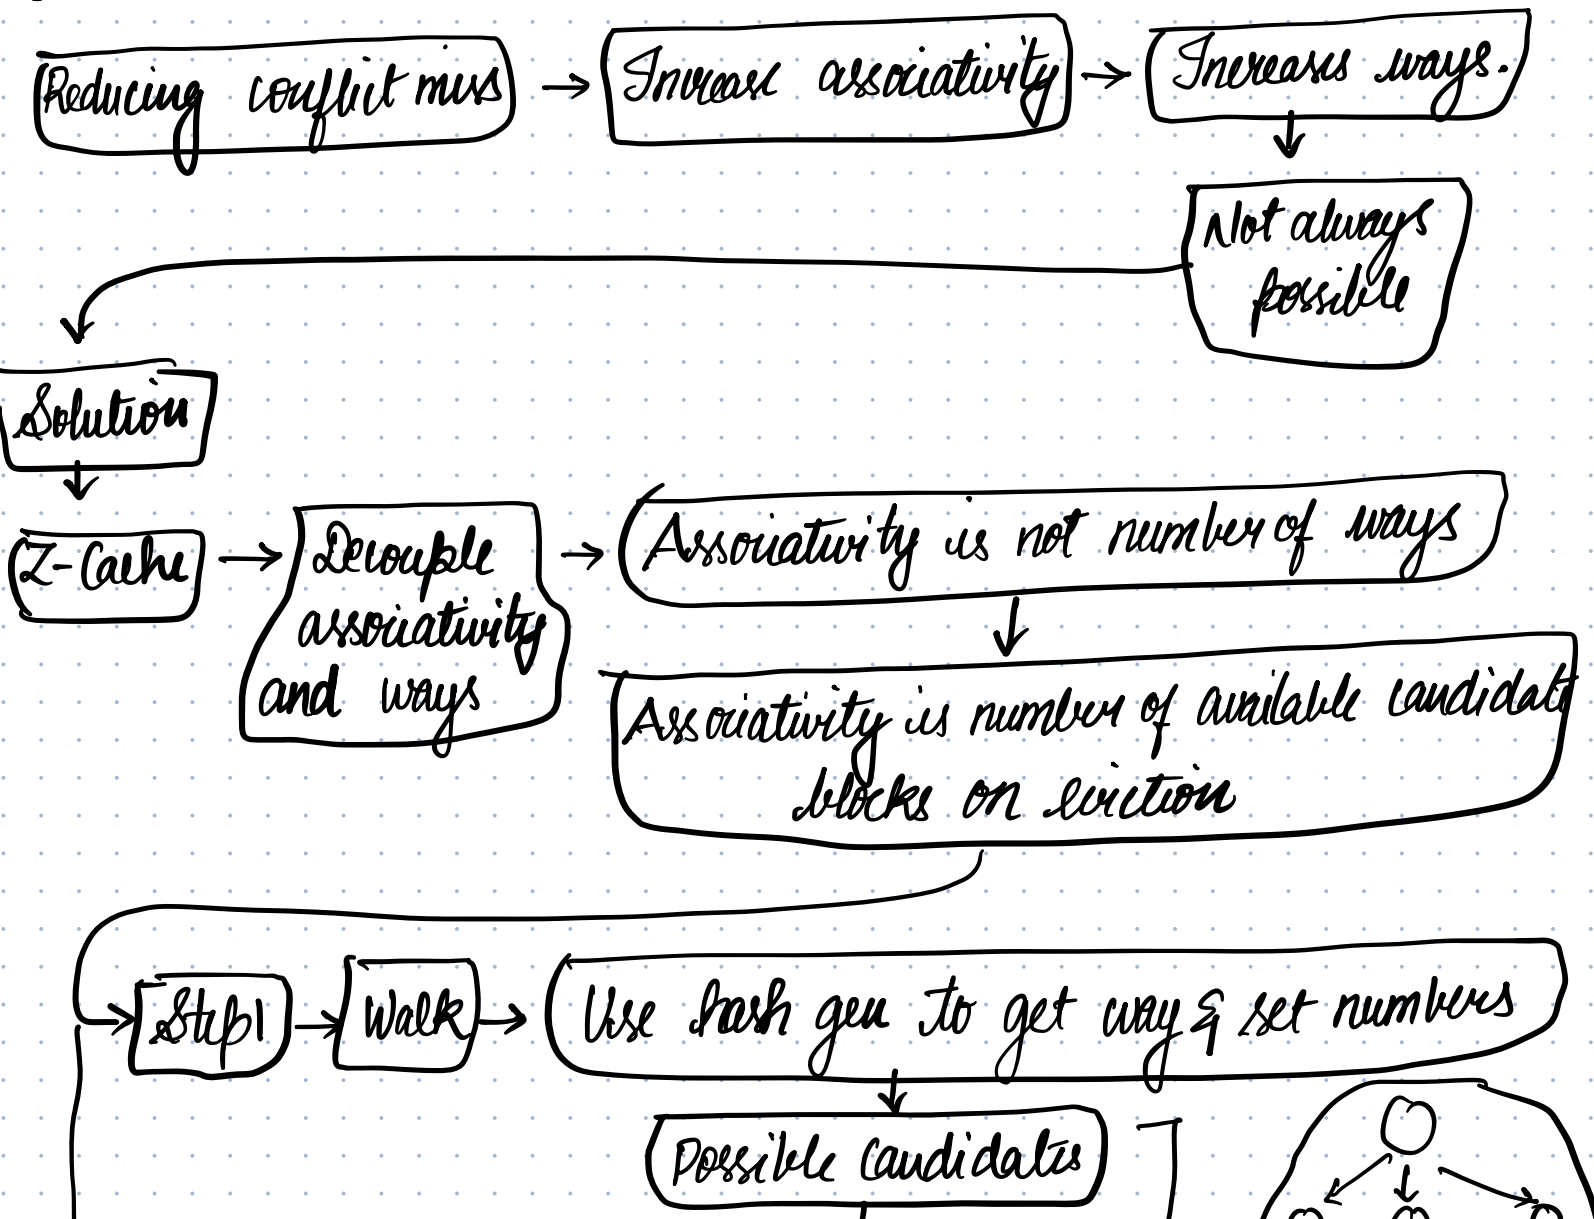 Reducing conflict miss
Increase associativity
Increases ways.
Not always
possible
Solution
Z-Cache
Decouple
associativity
and ways
Associativity is not number of ways
Associativity is number of available candidate
blocks on eviction
Step1
Walk
Use hash gen to get way & set numbers
Possible candidates